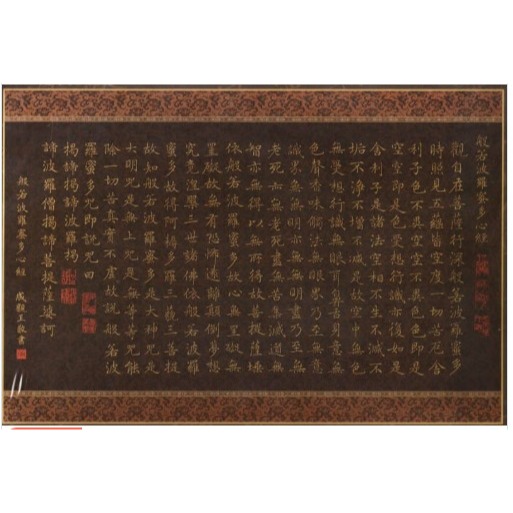 般若波羅蜜多心經
觀自在菩薩行深般若波羅蜜多
時照見五蘊皆空度一切苦厄舍
利子色不異空空不異色色即是
空空即是色受想行識亦復如是
舍利子是諸法空相不生不滅不
垢不淨不增不減是故空中無色
無受想行識無眼耳鼻舌身意無
色聲香味觸法無眼界乃至無意
識界無無明亦無無明盡乃至無
老死亦無老死盡無苦集滅道無
智亦無得以無所得故菩提薩埵
依般若波羅蜜多故心無罣礙無
罣礙故無有恐怖遠離顛倒夢想
究竟涅槃三世諸佛依般若波羅
蜜多故得阿耨多羅三藐三菩提
故知般若波羅蜜多是大神咒是
大明咒是無上咒是無等等咒能
除一切苦真實不虛故說般若波
羅蜜多咒即說咒曰
揭諦揭諦波羅揭
諦波羅僧揭諦菩提薩婆訶
般若波羅蜜多心經 敬書